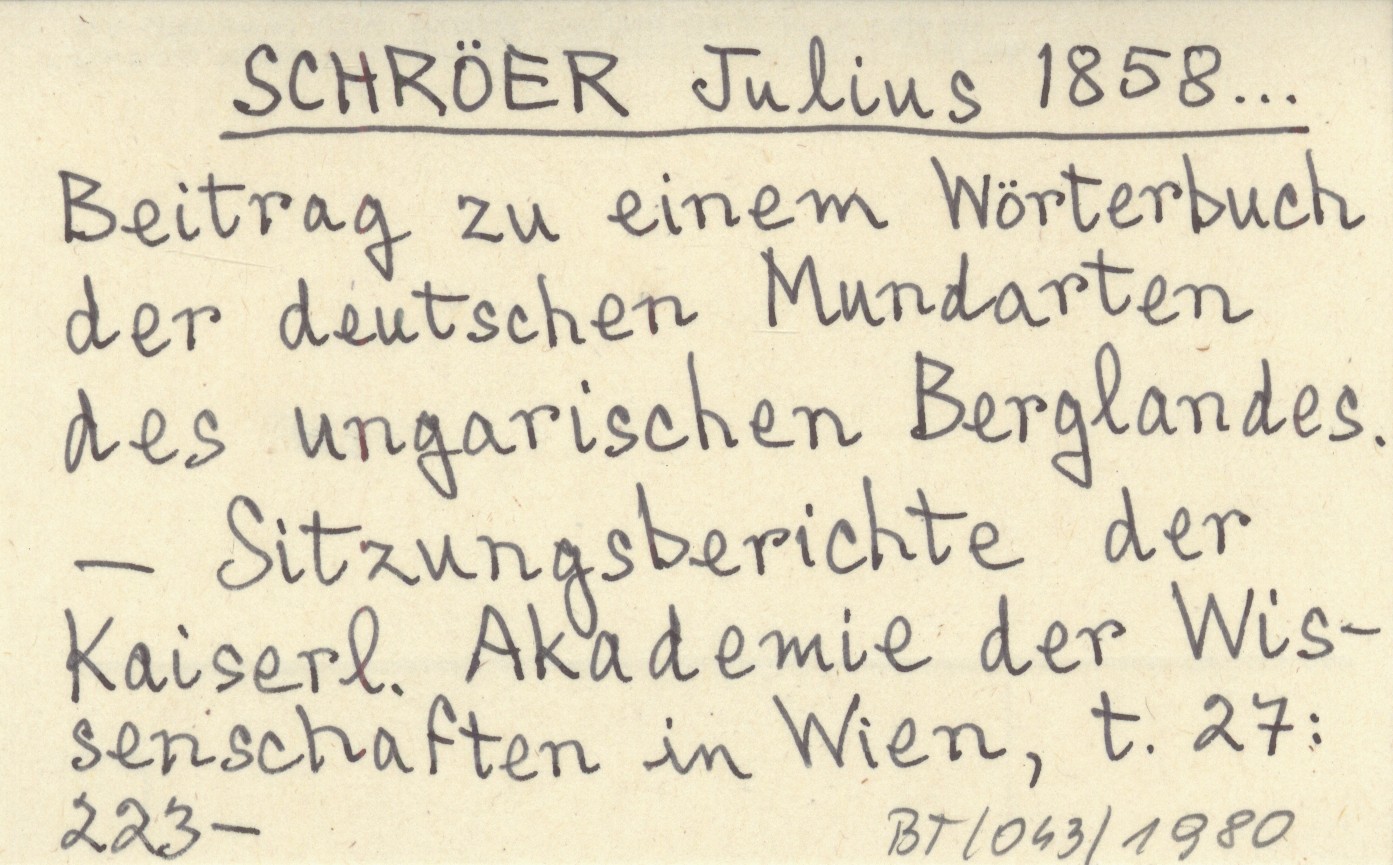 SCHRÖER Julius 1858...
Beitrag zu einem Wörterbuch
der deutschen Mundarten
des ungarischen Berglandes.
— Sitzungsberichte der
Kaiserl. Akademie der Wis-
senschaften in Wien, t. 27:
223—
BT/043/1980